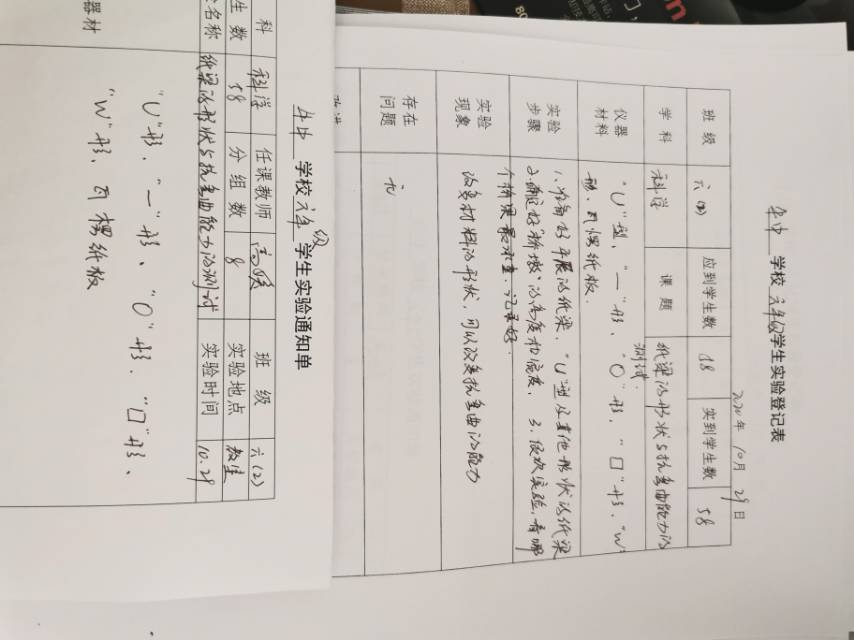 学校 六年级 学生实验登记表
2020年 10月 29日
班级 六(四) 应到学生数 58 实到学生数 58
学科 科学 课题 纸梁的形状与抗弯曲能力的
测试
仪器
材料
"U"型、"一"形、"O"形、"口"形、"W"
形、瓦楞纸板.
实验
步骤
1、准备好平展的纸梁、"U"型及其他形状的纸梁
2、确定好"桥墩"的高度和宽度、 3、依次实验,看哪
个桥梁最承重,记录好.
实验
现象
改变材料的形状,可以改变抗弯曲的能力
存在
问题
无
学校 六年级 学生实验通知单
科 科学 任课教师 班级 六(2)
生数 58 分组数 8 实验地点 教室
名称 纸梁的形状与抗弯曲能力的测试 实验时间 10.29
器材
"U"形、"一"形、"O"形、"口"形、
"W"形、瓦楞纸板